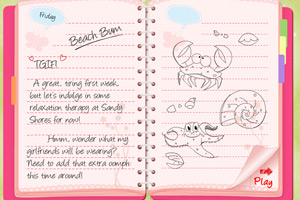 Friday
Beach Bum
TGIF!
A great, tiring first week,
but let's indulge in some
relaxation therapy at Sandy
Shores for now!
Hmm, wonder what my
girlfriends will be wearing?
Need to add that extra oomph
this time around!
Play